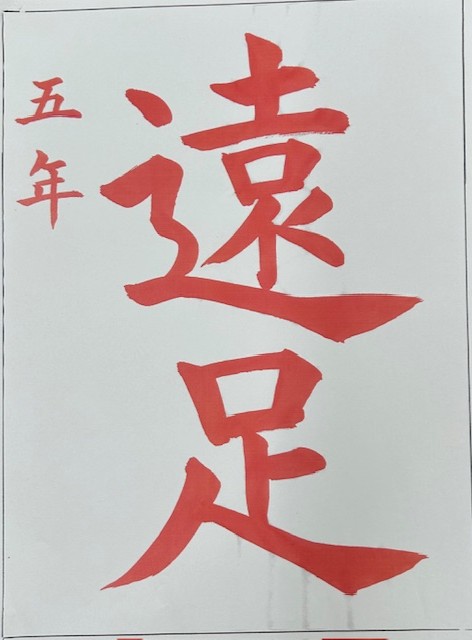 遠足
五年